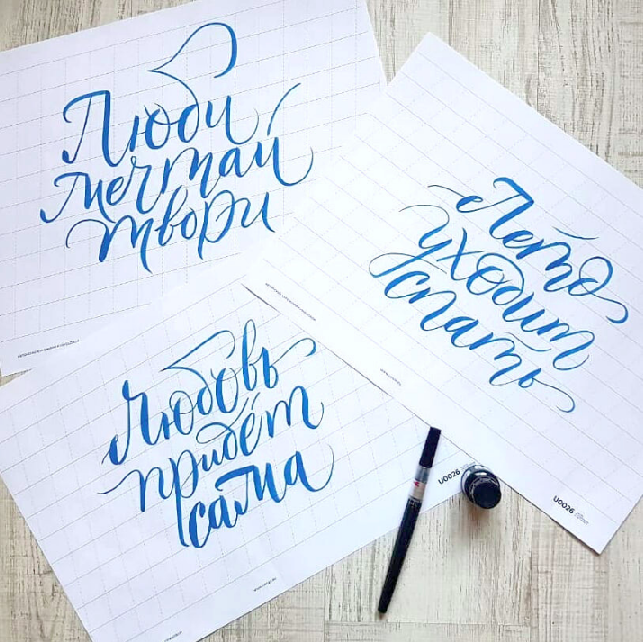 Люби
мечтай
твори
Лето
уходит
спать
Любовь
придёт
сама